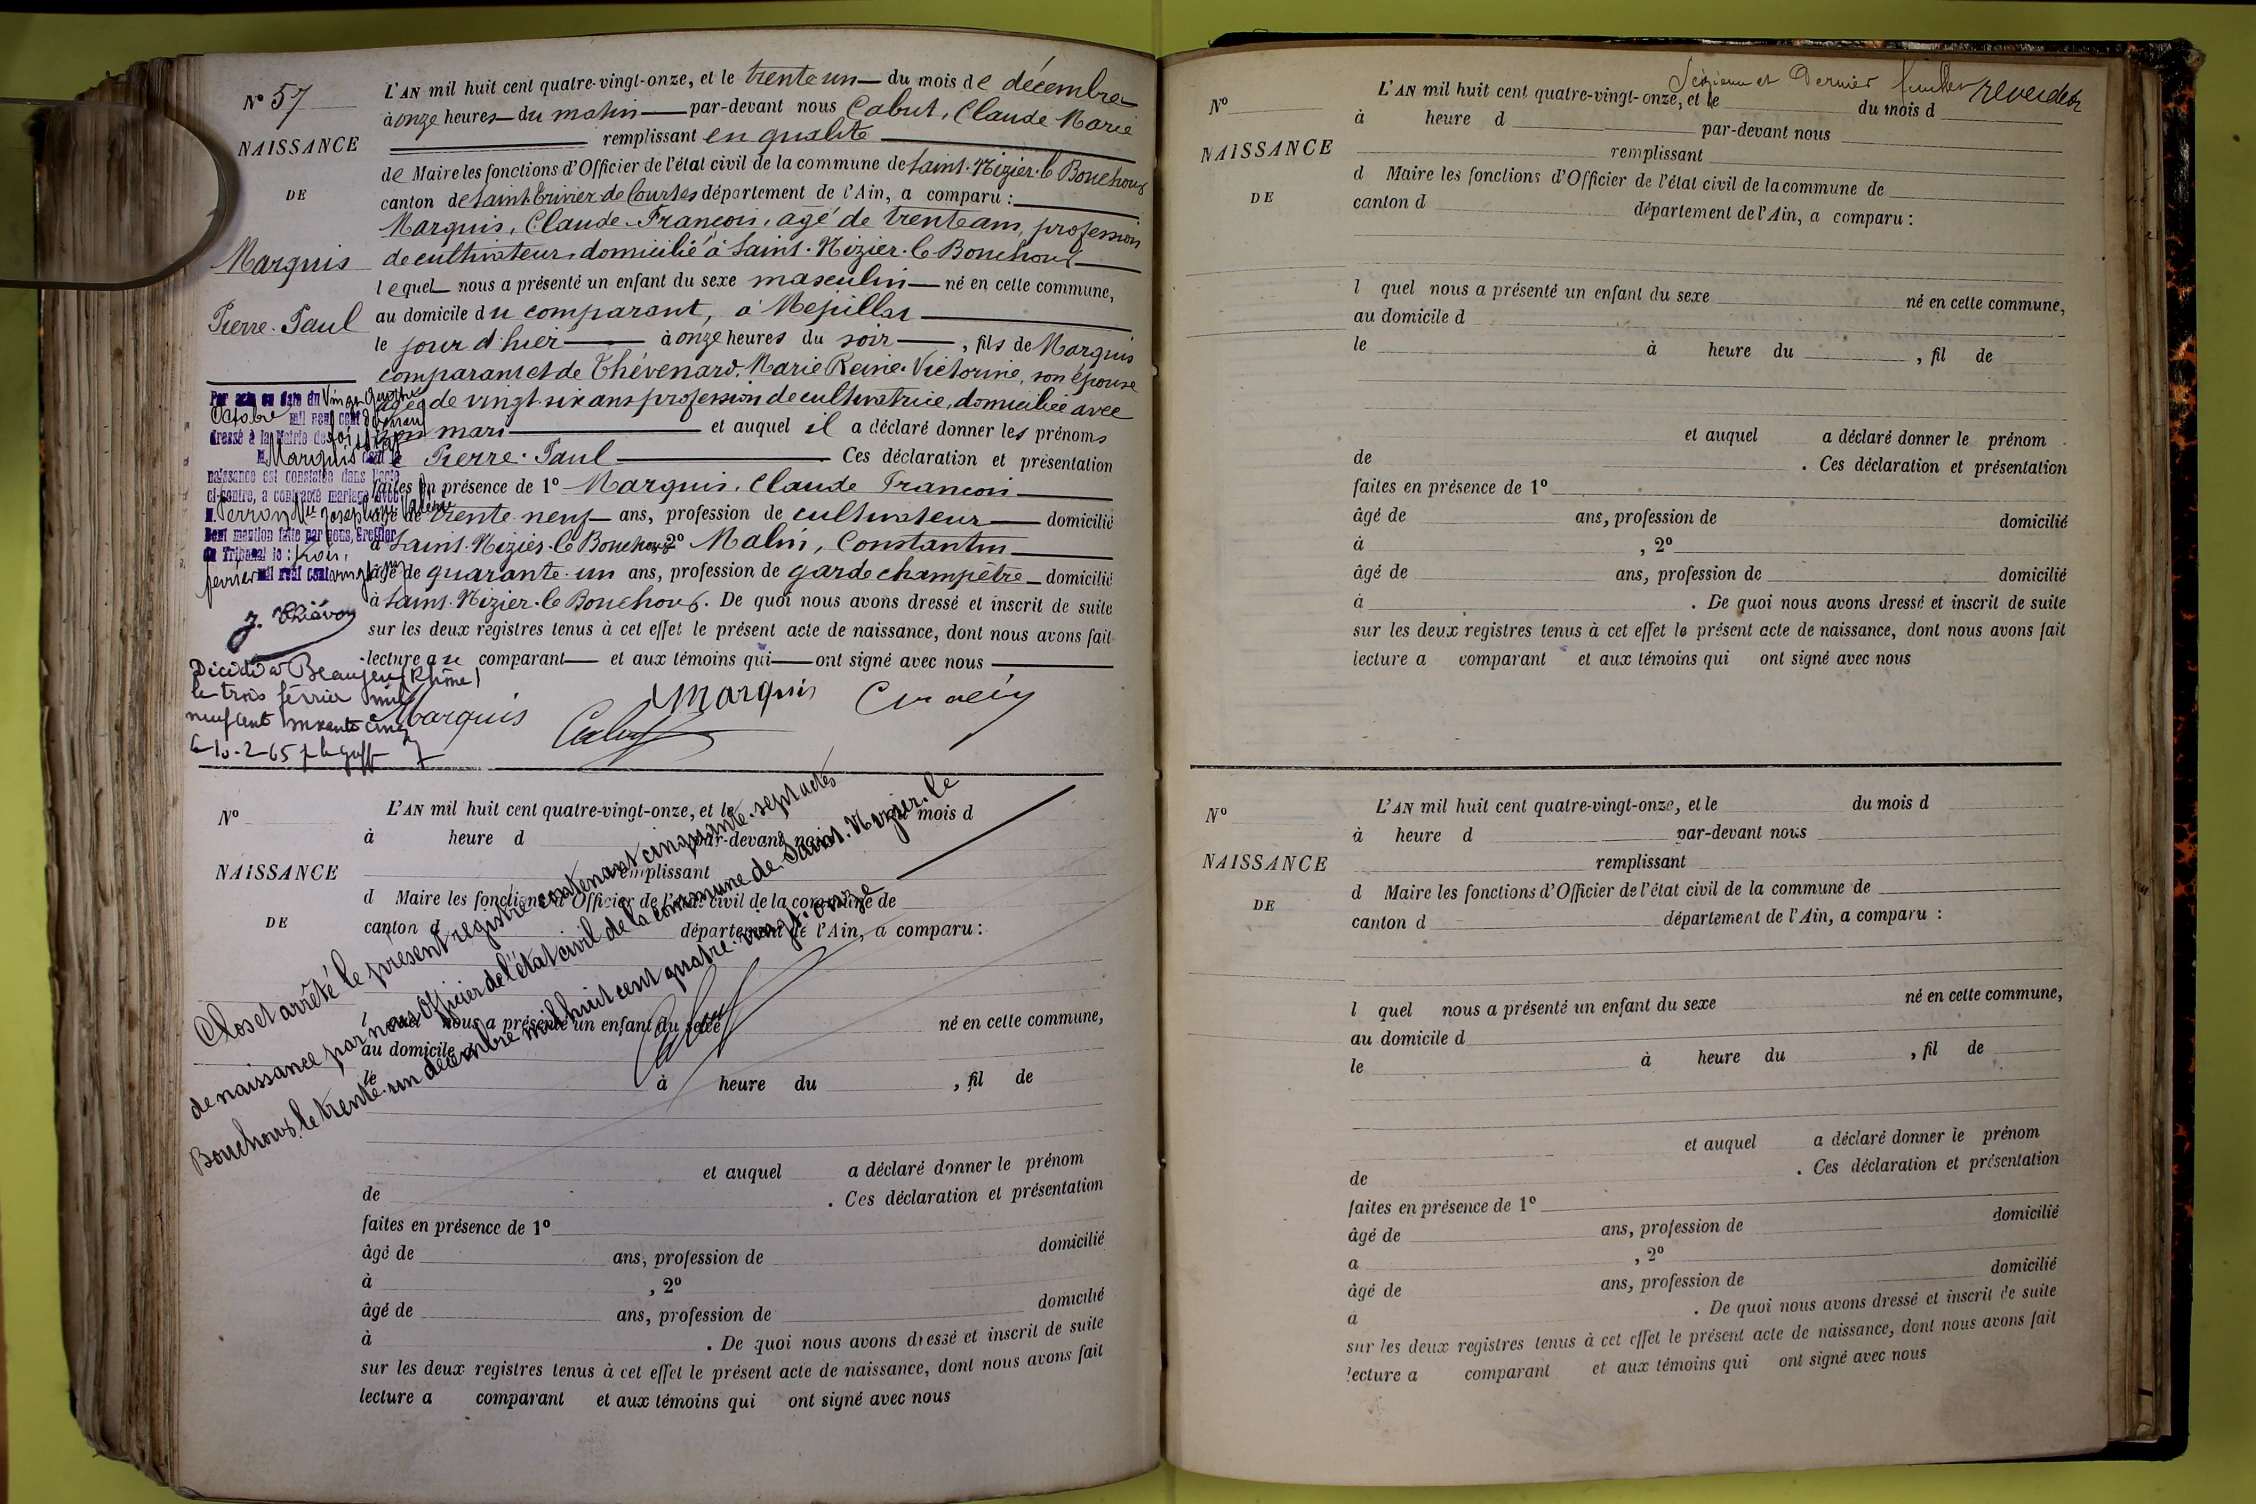 N° 57
NAISSANCE
DE
Marquis
Pierre-Paul
L'AN mil huit cent quatre-vingt-onze, et le trente un du mois de décembre
à onze heures du matin par-devant nous Cabut, Claude Marie
remplissant en qualité
de Maire les fonctions d'Officier de l'état civil de la commune de Saint-Nizier-le Bouchoux
canton de Saint-Trivier de Courtes département de l'Ain, a comparu :
Marquis, Claude-François, agé de trente ans, profession
de cultivateur, domicilié à Saint-Nizier-le Bouchoux
lequel nous a présenté un enfant du sexe masculin né en cette commune,
au domicile du comparant, à Mepillat
le jour d'hier à onze heures du soir, fils de Marquis
comparant et de Thévenard, Marie Reine Victorine, son épouse
agée de vingt-six ans profession de cultivatrice, domiciliée avec
son mari et auquel il a déclaré donner les prénoms
de Pierre-Paul Ces déclaration et présentation
faites en présence de 1° Marquis, Claude François
âgé de trente-neuf ans, profession de cultivateur domicilié
à Saint-Nizier-le Bouchoux 2° Malin, Constantin
âgé de quarante-un ans, profession de garde champêtre domicilié
à Saint-Nizier-le Bouchoux. De quoi nous avons dressé et inscrit de suite
sur les deux registres tenus à cet effet le présent acte de naissance, dont nous avons fait
lecture au comparant et aux témoins qui ont signé avec nous
Marquis Cabut Marquis
Par acte en date du Vingt quatre
Octobre mil neuf cent
dressé à la Mairie de
M. Marquis dont la
naissance est constatée dans l'acte
ci-contre, a contracté mariage avec
M. Perron Joséphine Valérie
Dont mention faite par nous, Greffier
du Tribunal le : trois
février mil neuf cent vingt
Décédé à Beaujeu (Rhône)
le trois février mil
neuf cent soixante cinq
le 10-2-65
N°
NAISSANCE
DE
L'AN mil huit cent quatre-vingt-onze, et le du mois d
à heure d par-devant nous
remplissant
d Maire les fonctions d'Officier de l'état civil de la commune de
canton d département de l'Ain, a comparu :
l quel nous a présenté un enfant du sexe né en cette commune,
au domicile d
le à heure du , fil de
et auquel a déclaré donner le prénom
de . Ces déclaration et présentation
faites en présence de 1°
âgé de ans, profession de domicilié
à , 2°
âgé de ans, profession de domicilié
à . De quoi nous avons dressé et inscrit de suite
sur les deux registres tenus à cet effet le présent acte de naissance, dont nous avons fait
lecture a comparant et aux témoins qui ont signé avec nous
Clos et arrêté le présent registre contenant cinquante-sept actes
de naissance par nous Officier de l'état civil de la commune de Saint-Nizier-le
Bouchoux, le trente-un décembre mil huit cent quatre-vingt-onze
Cabut
et Dernier feuillet
N°
NAISSANCE
DE
L'AN mil huit cent quatre-vingt-onze, et le du mois d
à heure d par-devant nous
remplissant
d Maire les fonctions d'Officier de l'état civil de la commune de
canton d département de l'Ain, a comparu :
l quel nous a présenté un enfant du sexe né en cette commune,
au domicile d
le à heure du , fil de
et auquel a déclaré donner le prénom
de . Ces déclaration et présentation
faites en présence de 1°
âgé de ans, profession de domicilié
à , 2°
âgé de ans, profession de domicilié
à . De quoi nous avons dressé et inscrit de suite
sur les deux registres tenus à cet effet le présent acte de naissance, dont nous avons fait
lecture a comparant et aux témoins qui ont signé avec nous
N°
NAISSANCE
DE
L'AN mil huit cent quatre-vingt-onze, et le du mois d
à heure d par-devant nous
remplissant
d Maire les fonctions d'Officier de l'état civil de la commune de
canton d département de l'Ain, a comparu :
l quel nous a présenté un enfant du sexe né en cette commune,
au domicile d
le à heure du , fil de
et auquel a déclaré donner le prénom
de . Ces déclaration et présentation
faites en présence de 1°
âgé de ans, profession de domicilié
a , 2°
âgé de ans, profession de domicilié
à . De quoi nous avons dressé et inscrit de suite
sur les deux registres tenus à cet effet le présent acte de naissance, dont nous avons fait
lecture a comparant et aux témoins qui ont signé avec nous